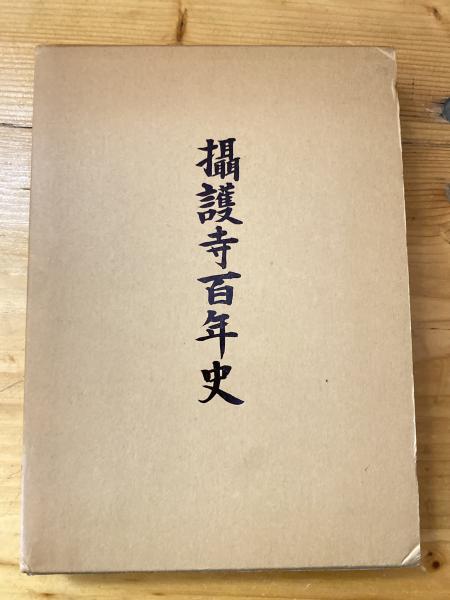 攝護寺百年史